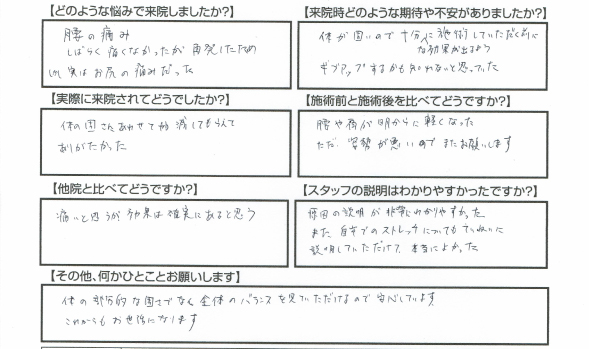 【どのような悩みで来院しましたか？】
腰の痛み
しばらく痛くなかったが再発したため
実はお尻の痛みだった
【来院時どのような期待や不安がありましたか？】
体が固いので十分に施術していただく前に
な効果が出るか
ギブアップするかも知れないと思っていた
【実際に来院されてどうでしたか？】
体の固さにあわせて加減してもらえて
ありがたかった
【施術前と施術後を比べてどうですか？】
腰や肩が明らかに軽くなった
ただ、姿勢が悪いのでまたお願いします
【他院と比べてどうですか？】
痛いと思うが効果は確実にあると思う
【スタッフの説明はわかりやすかったですか？】
原因の説明が非常にわかりやすかった
また自宅でのストレッチについてもていねいに
説明していただけて、本当によかった
【その他、何かひとことお願いします】
体の部分的な固さでなく全体のバランスを見ていただけるので安心しています
これからもお世話になります